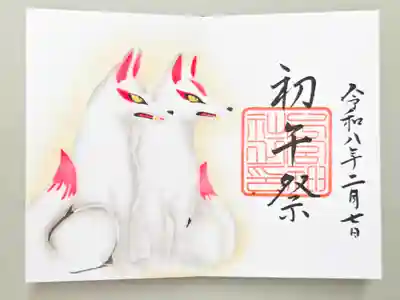 令和八年二月七日
初午祭